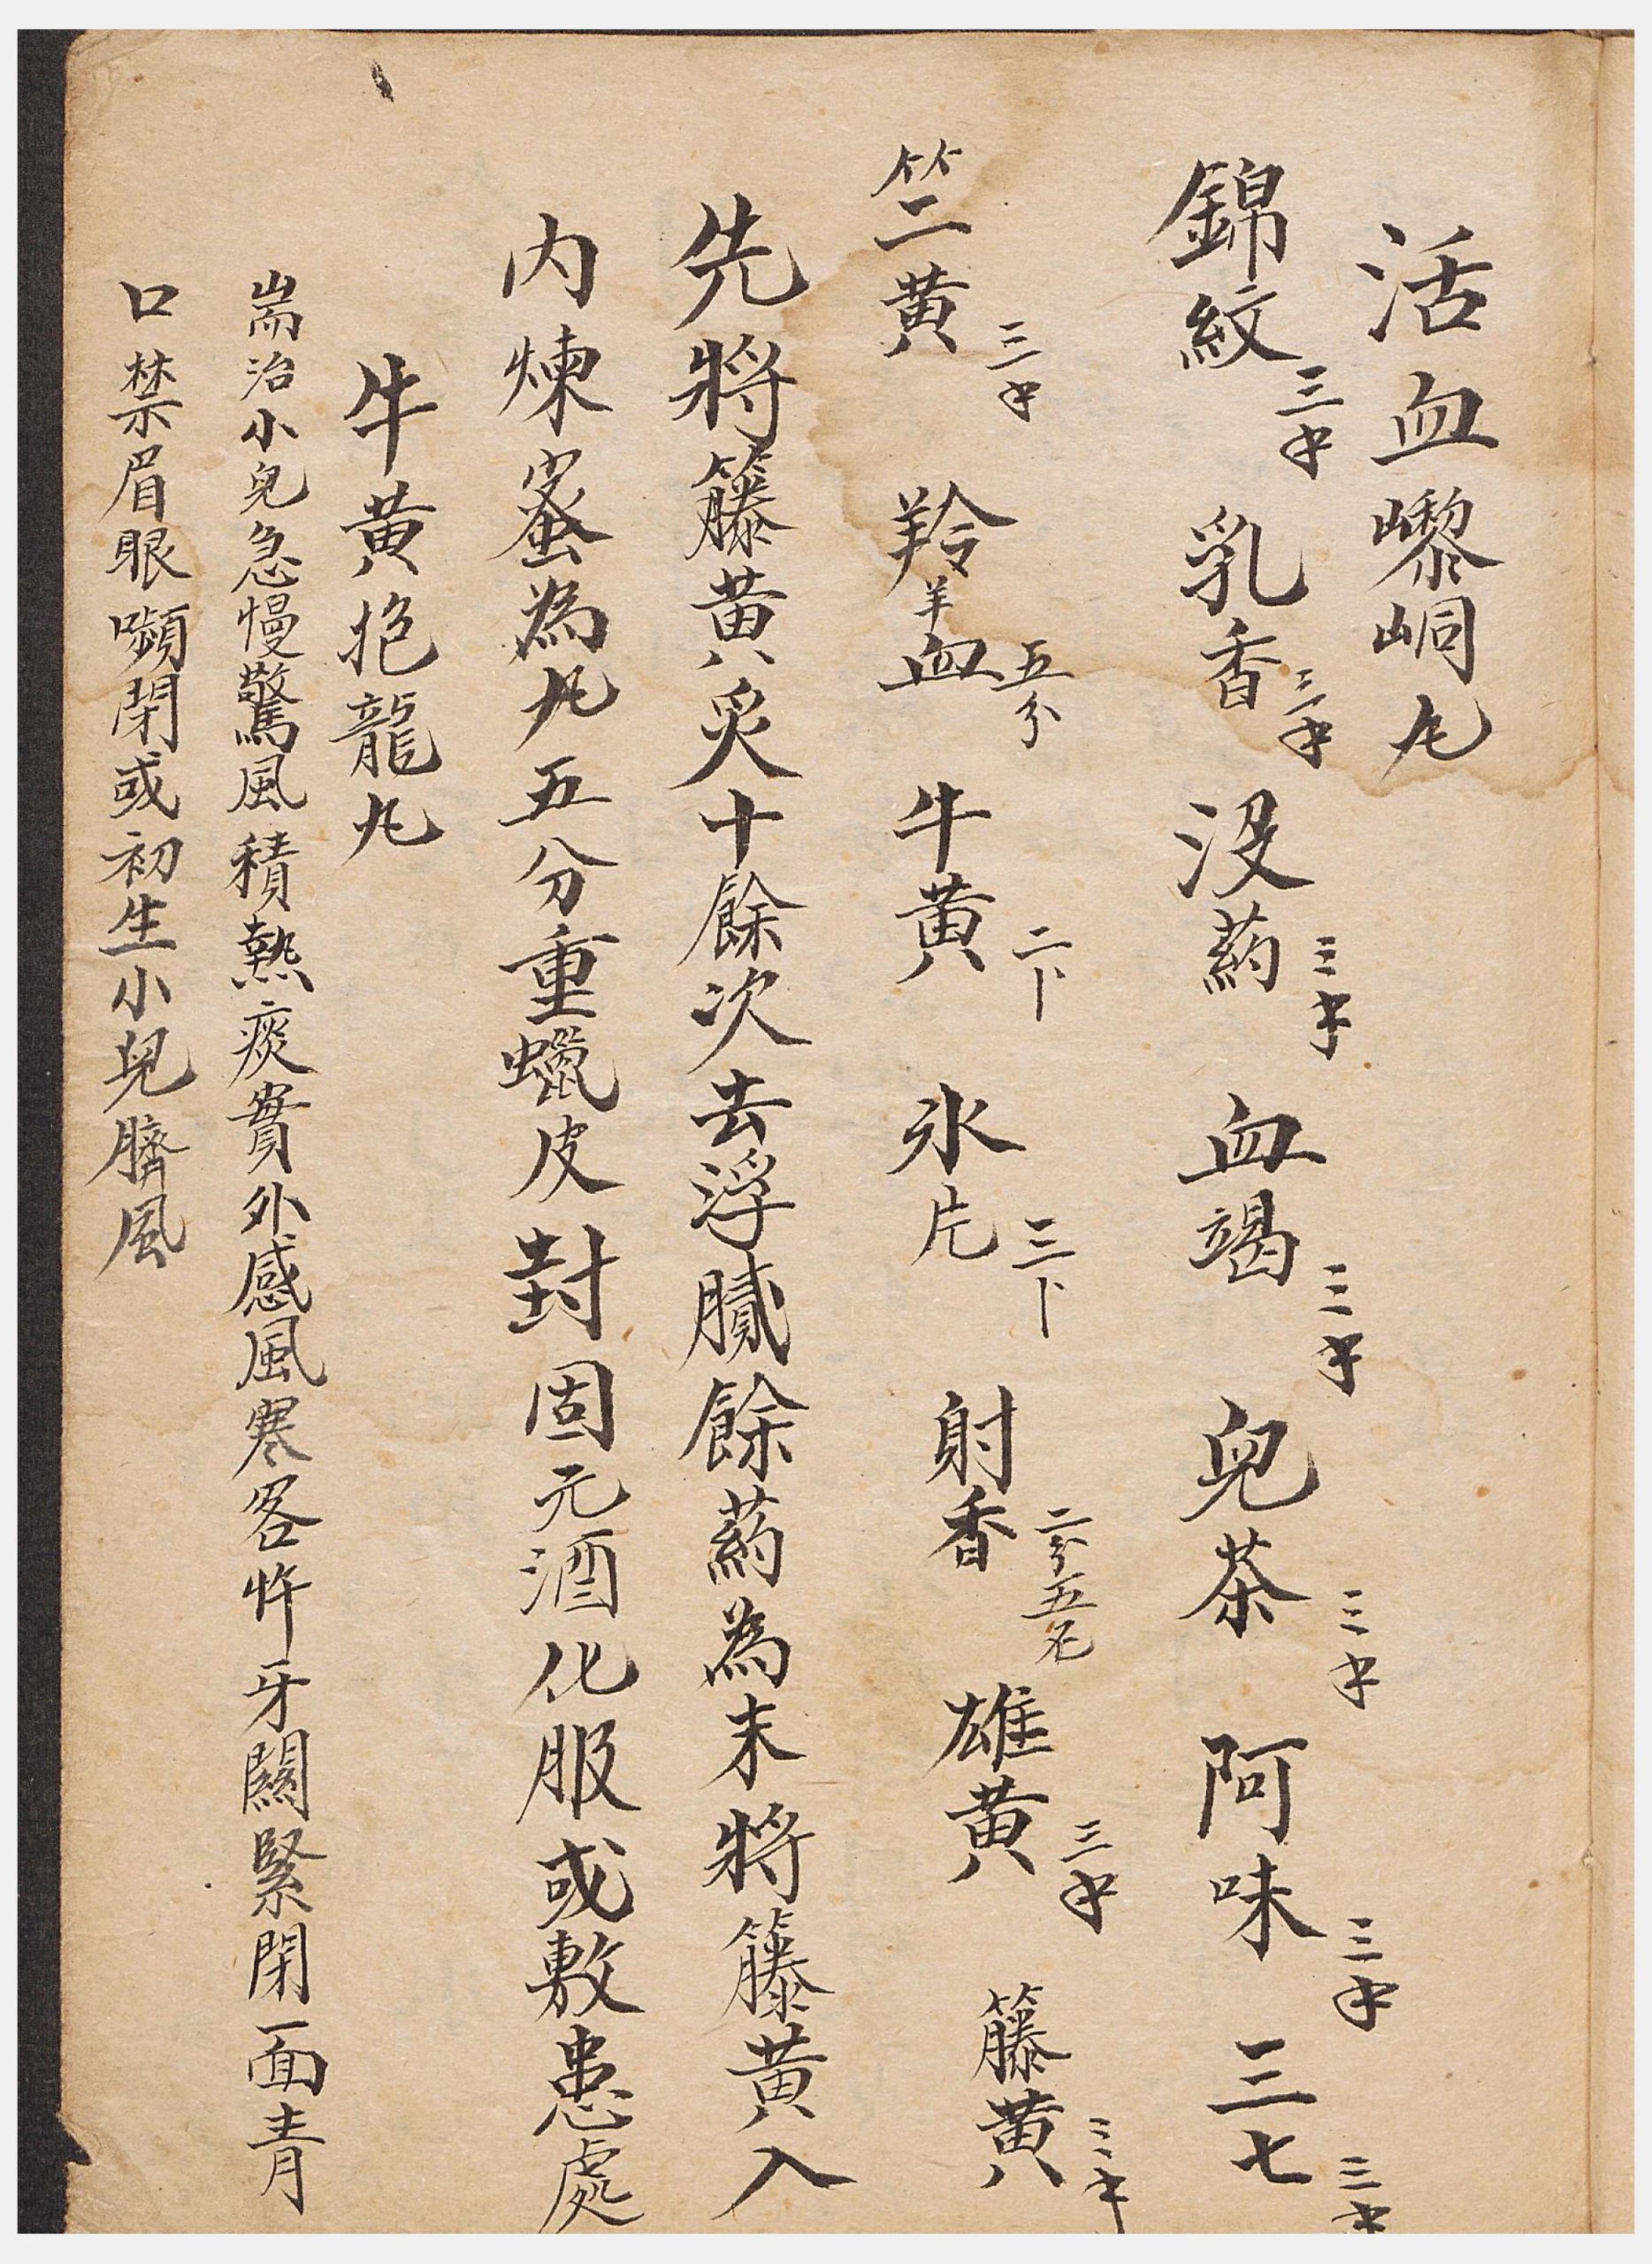 活血嚟峒丸
錦紋三錢 乳香三錢 沒葯三錢 血竭三錢 兒茶三錢 阿味三錢 三七三錢
竺黄三錢 羚羊血五分 牛黄二卜 氷片三卜 射香二分五厘 雄黄三錢 籐黄三錢
先將籐黄炙十餘次去浮膩餘葯為末將籐黄入
内煉蜜為丸五分重蠟皮封固元酒化服或敷患處
牛黄抱龍丸
耑治小兒急慢驚風積熱痰實外感風寒客忤牙關緊閉面青
口禁眉眼嚬閉或初生小兒臍風